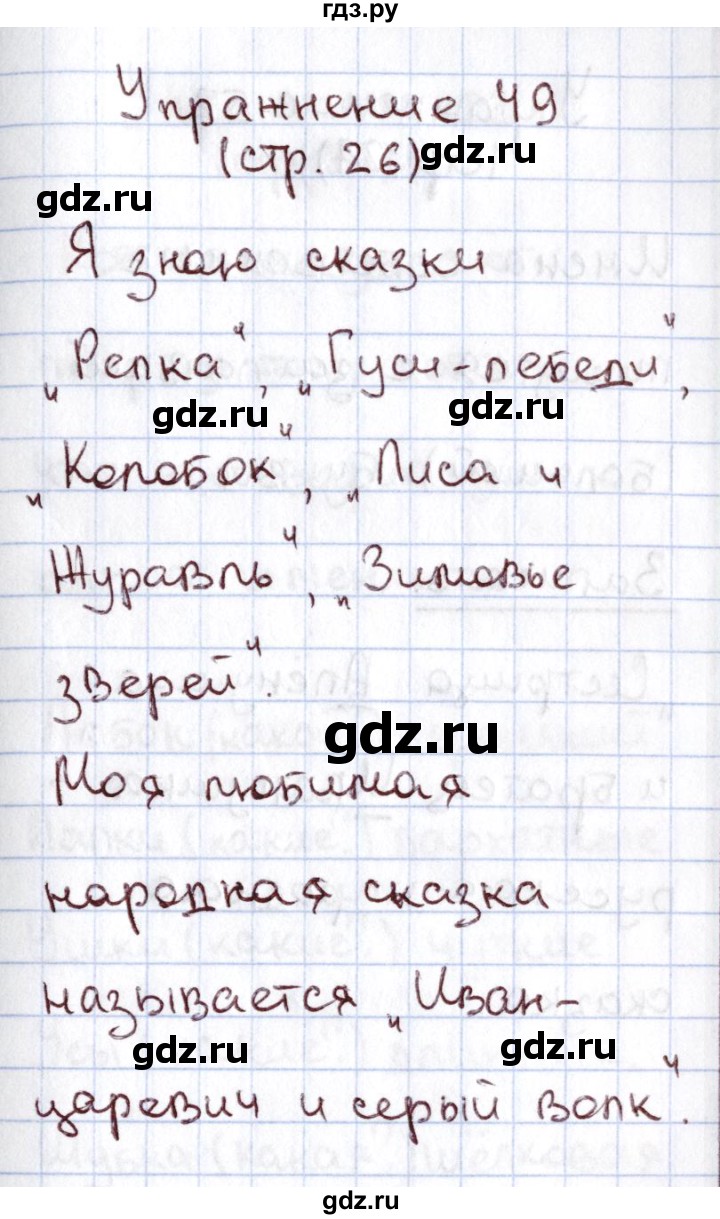 гдз.ру
Упражнение 49
(стр. 26)
gdz.ru
gdz.ru
Я знаю сказки
„Репка“, „Гуси-лебеди“,
gdz.ru
gdz.ru
„Колобок“, „Лиса и
Журавль“, „Зимовье
зверей“.
gdz.ru
Моя любимая
народная сказка
называется „Иван-
gdz.ru
gdz.ru
царевич и серый волк“.
gdz.ru